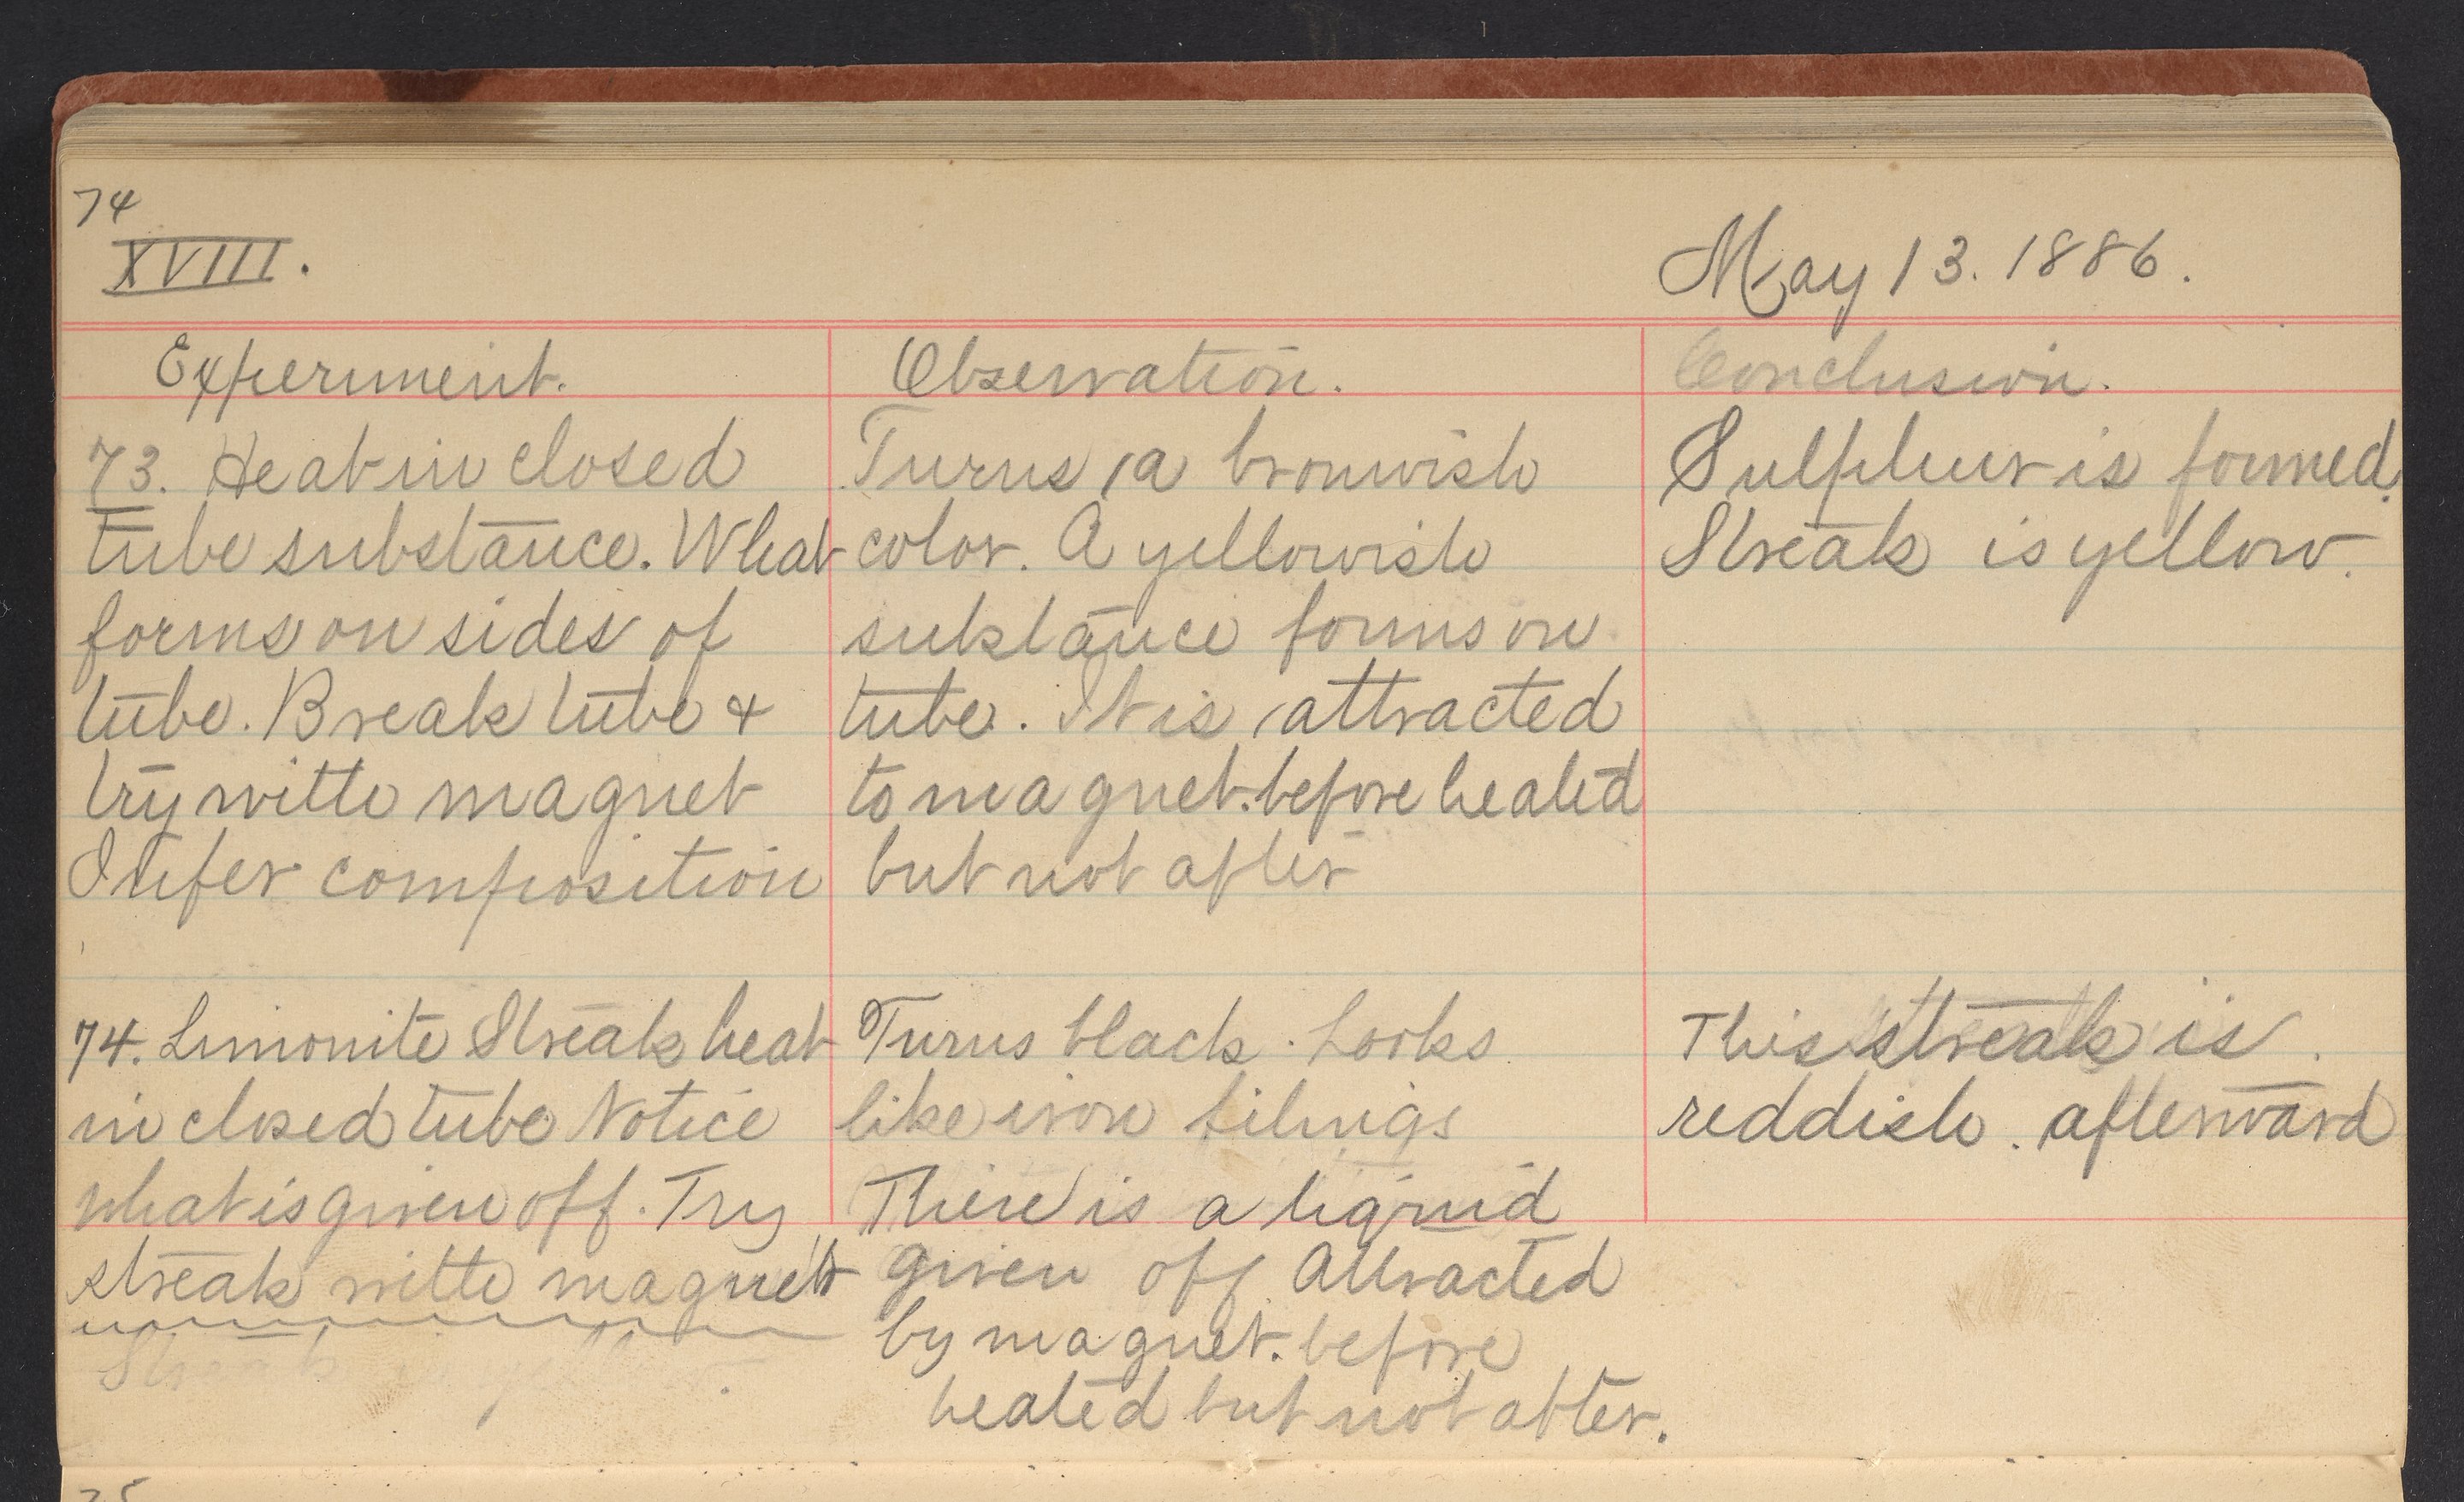 74
XVIII.
May 13. 1886.
Experiment.
Observation.
Conclusion.
73. Heat in closed
tube substance. What
forms on sides of
tube. Break tube &
try with magnet
Infer composition
Turns a brownish
color. A yellowish
substance forms on
tube. It is attracted
to magnet. before heated
but not after
Sulphur is formed.
Streak is yellow.
74. Limonite Streak heat
in closed tube Notice
what is given off. Try
streak with magnet
Streak
Turns black. Looks
like iron filings
There is a liquid
given off. Attracted
by magnet. before
heated but not after.
This streak is.
reddish. afterward
75